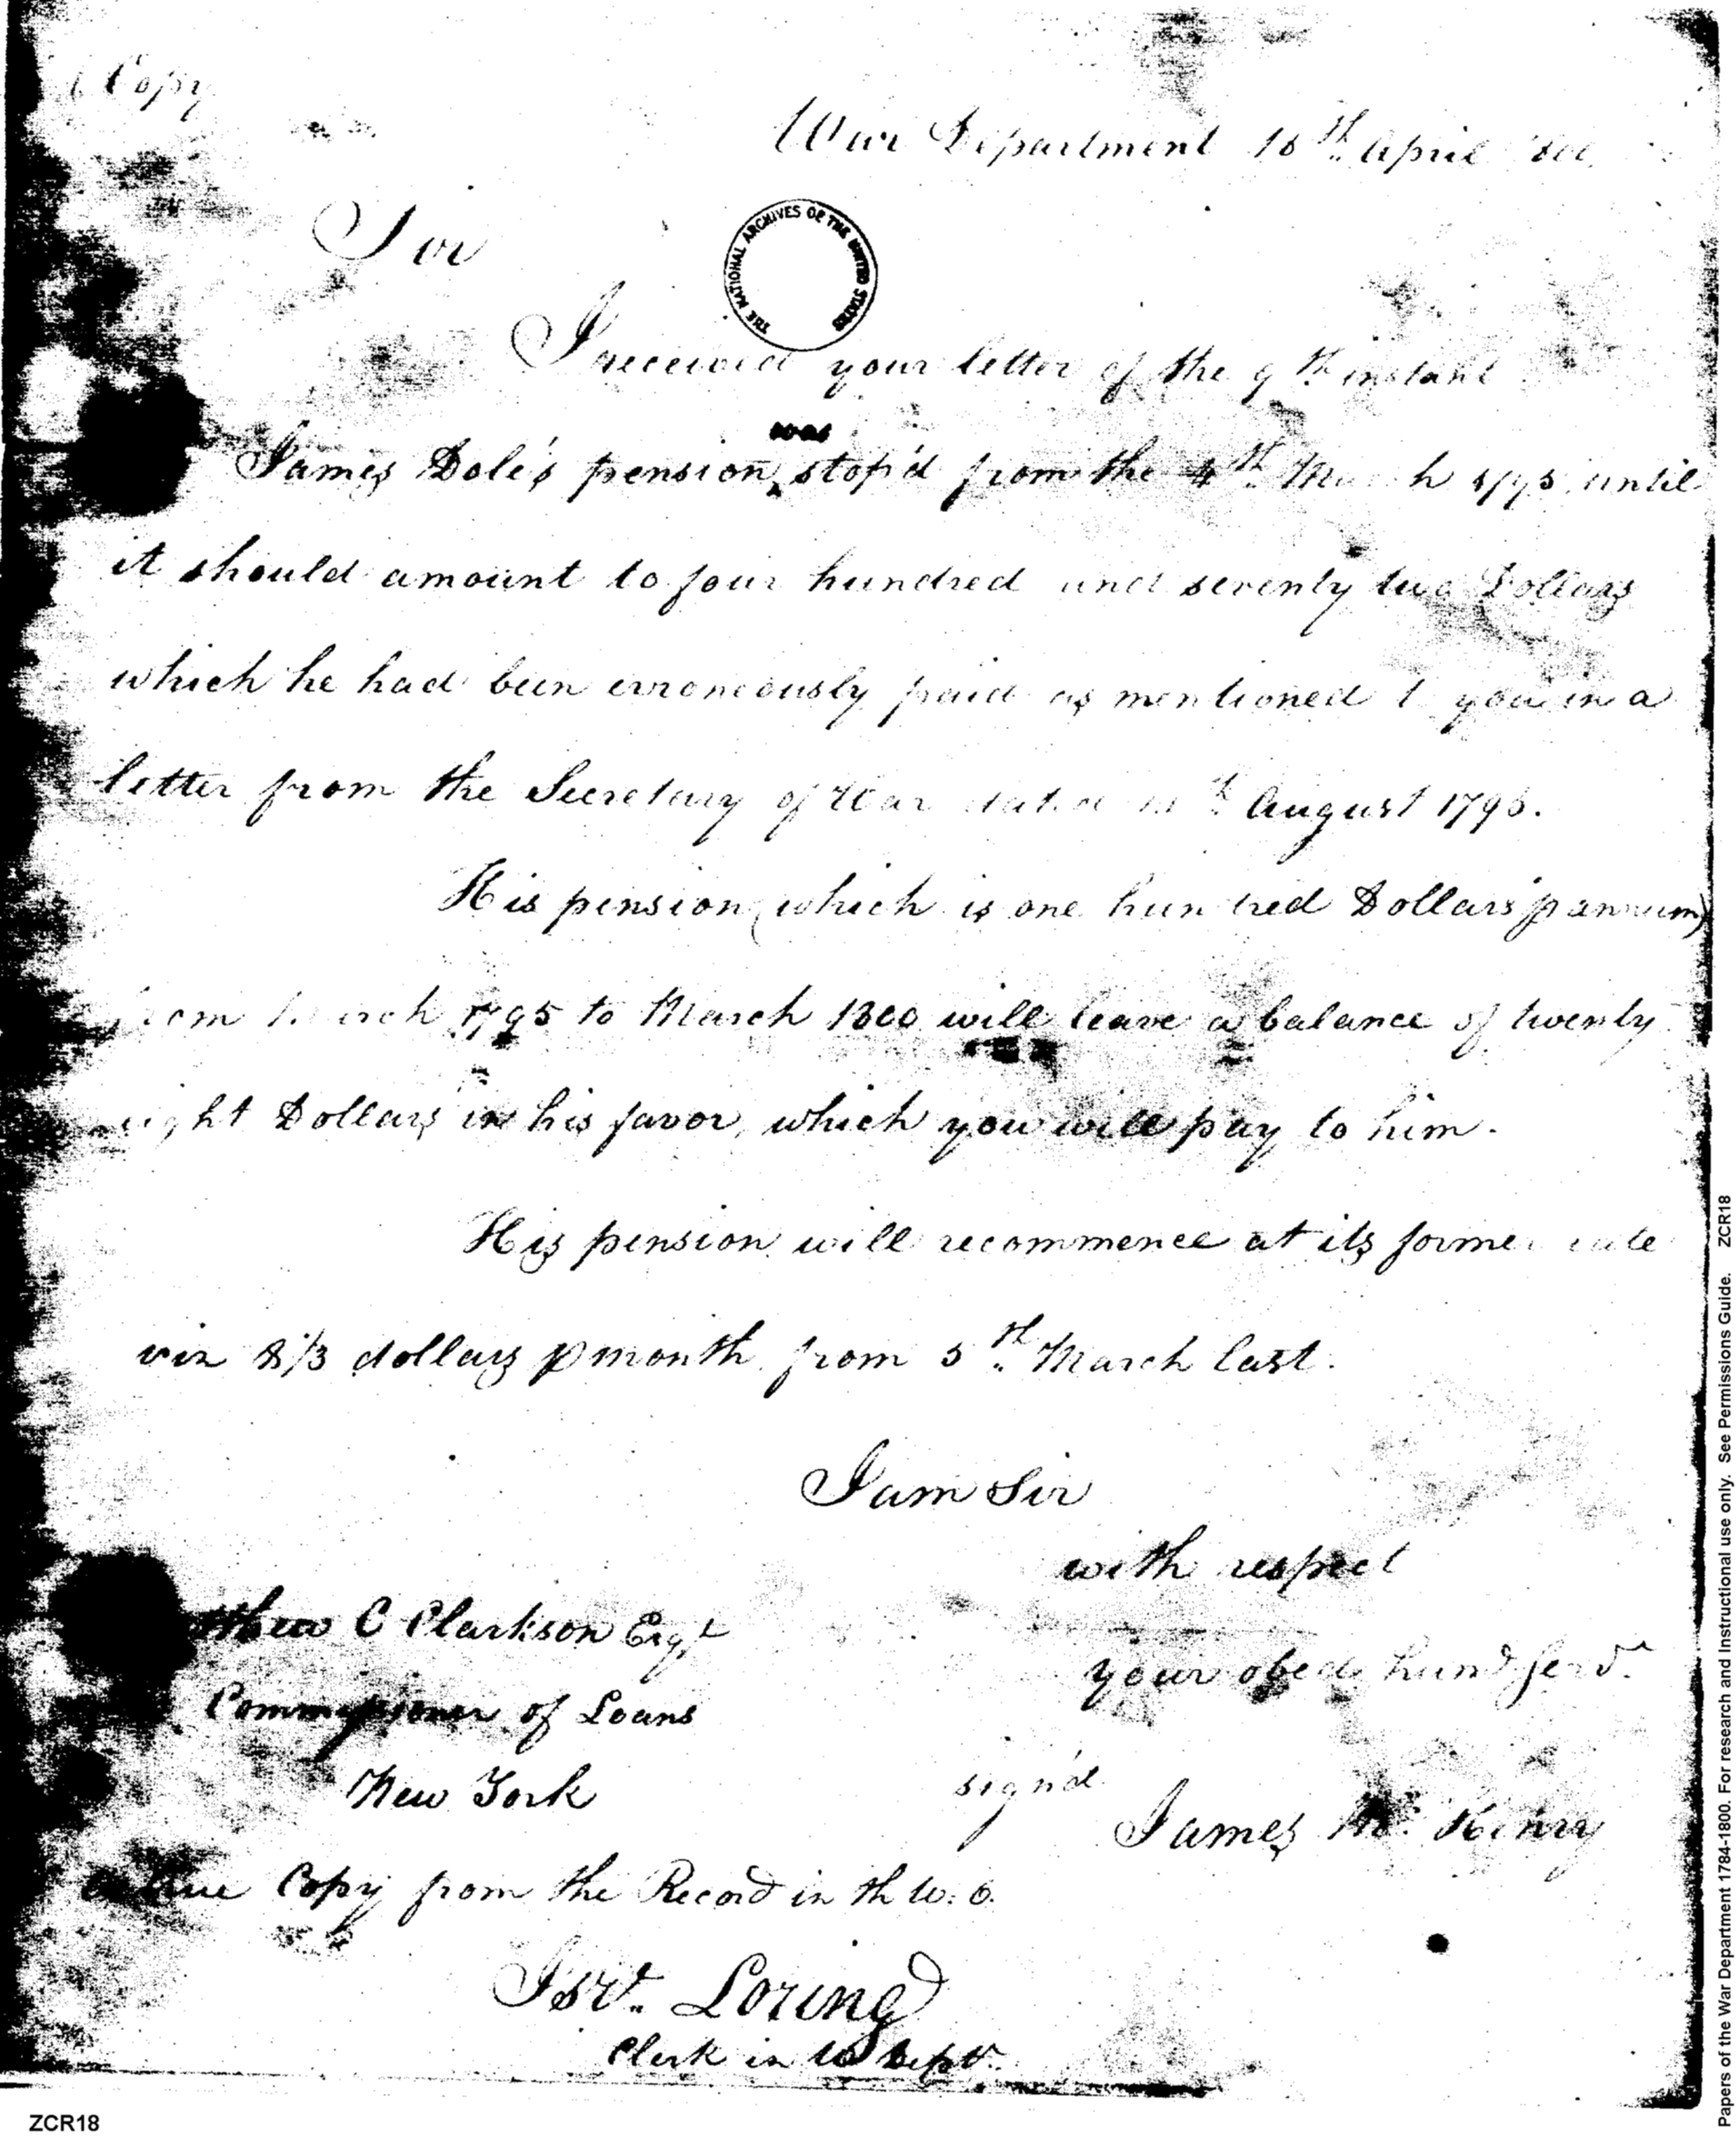 Copy
War Department 10th April
Sir
THE NATIONAL ARCHIVES OF THE UNITED STATES
I received your letter of the 9th instant
was
James Dole's pension stop'd from the 4th March 1795 until
it should amount to four hundred and seventy two Dollars
which he had been erroneously paid as mentioned to you in a
letter from the Secretary of War dated August 1795.
His pension (which is one hundred Dollars p annum)
from March 1795 to March 1800 will leave a balance of twenty
eight Dollars in his favor, which you will pay to him.
His pension will recommence at its former rate
viz 8⅓ dollars p month from 5th March last.
I am Sir
with respect
your obed humd servt
Matthew C Clarkson Esqr
Commissioner of Loans
New York
sign'd
James Mc. Henry
a true Copy from the Record in th W. O.
Isrl. Loring
Clerk in W Dept.
ZCR18
Papers of the War Department 1784-1800. For research and Instructional use only. See Permissions Guide. ZCR18